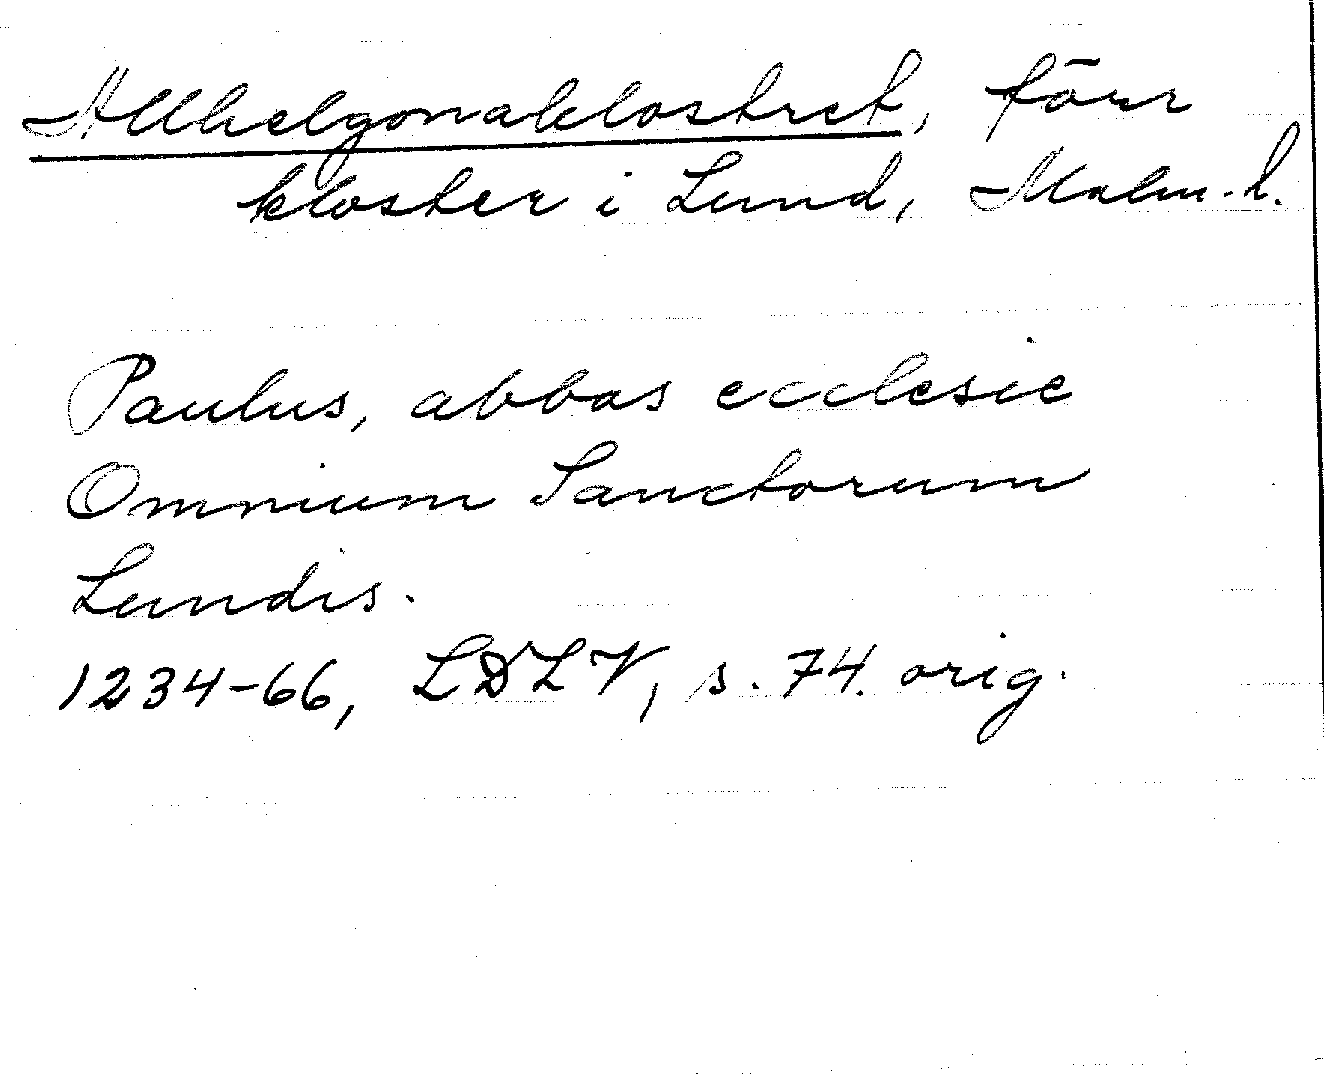 Allhelgonaklostret, förr
kloster i Lund, Malm. l.
Paulus, abbas ecclesie
Omnium Sanctorum
Lundis.
1234-66, LDLV, s. 74. orig.